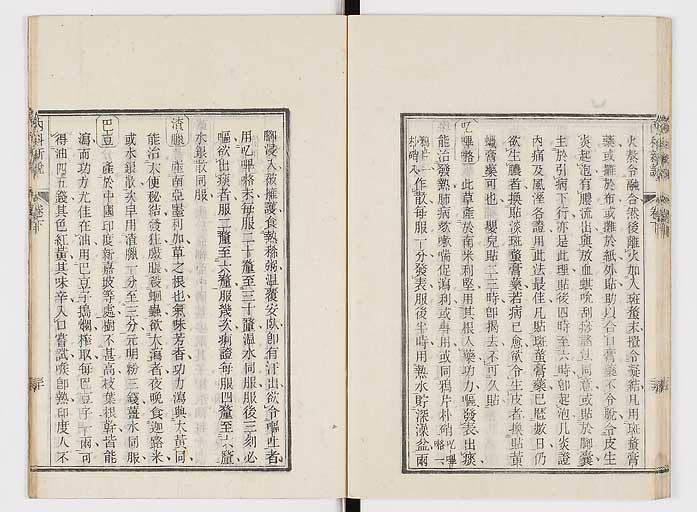 火漿令融合然後離火加入斑蝥末攪令凝結凡用斑蝥膏
藥或攤於布或攤於紙外貼助以合口膏藥不令脫令皮生
炎起泡有膿流出與放血蜞吮刮痧諸法同意或貼於腳囊
主於引病下行亦是此理貼後四時至六時即起泡凡炎證
內痛及風溼各證用此法最佳凡貼斑蝥膏藥已歷數日仍
欲生膿者換貼淡斑蝥膏藥若病已愈欲令生皮者換貼黃
蠟膏藥可也嬰兒貼一二時即揭去不可久貼
吃嗶嗒 此草產於南米利堅用其根入藥功力嘔發表出痰
能治發熱肺病欬嗽喘促瀉利或專用或同鴉片朴硝
作散每服一分發表服後半時用熱水貯深澡盆兩
腳浸入被擁護食熱稀粥溫覆安臥即有汗出欲令嘔吐者
用吃嗶嗒末每服二十釐至三十釐溫水同服服後三刻必
嘔欲出痰者服二釐至六釐服幾次痢證每服四釐至六釐
或水銀散同服
渣臘 產南亞墨利加草之根也氣味芳香功力瀉與大黃同
能治大便秘結發狂臌脹殺蛔蟲欲大瀉者夜晚食迦路米
或水銀散次早用渣臘一分至三分元明粉三錢薑水同服
巴豆 產於中國印度新嘉坡等處樹不甚高枝葉根幹皆能
瀉而功力尤佳在油用巴豆子搗爛榨取每巴豆子十兩可
得油四五錢其色紅黃其味辛入口嘗試喉即熱印度人不
內科新說
卷下